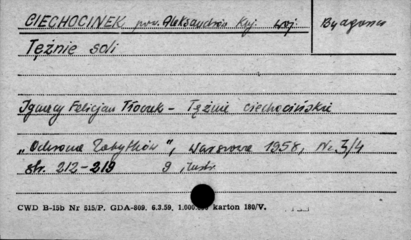 CIECHOCINEK, pow. Aleksandrów Kuj. woj. Bydgoszcz
Tężnie soli
Ignacy Felicjan Tłoczek - Tężnie ciechocińskie
„Ochrona Zabytków", Warszawa 1958, Nr. 3/4
str. 212-219 9 ilustr.
CWD B-15b Nr 515/P. GDA-809. 6.3.59, karton 180/V.